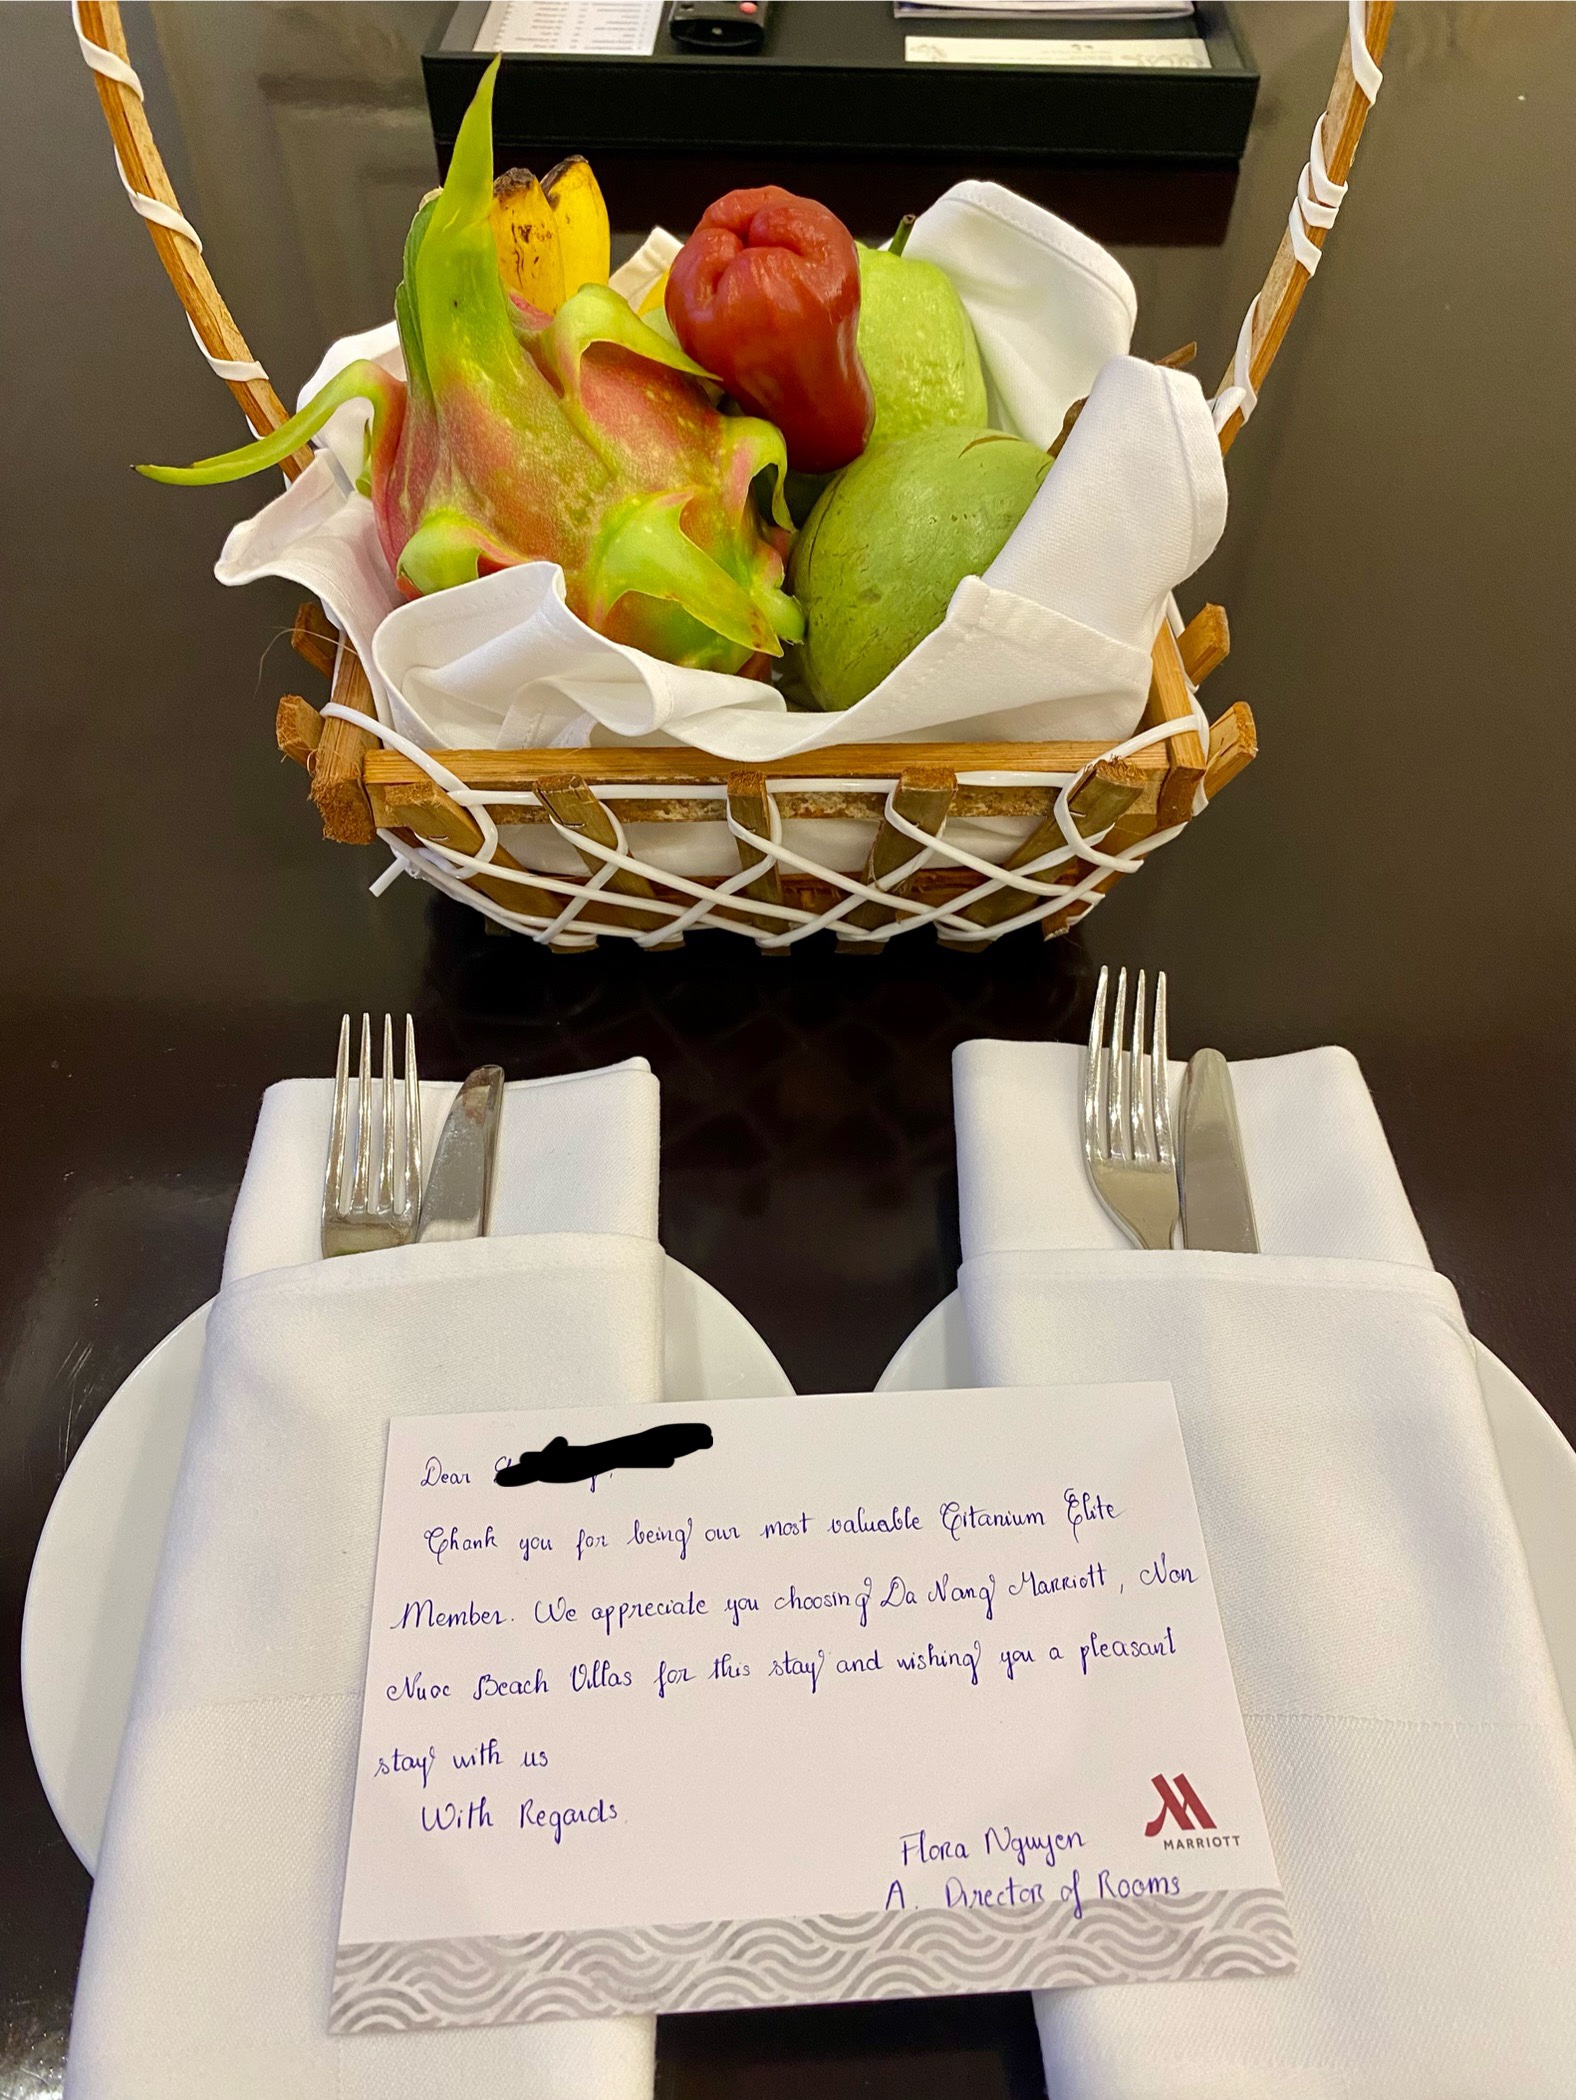 Dear
Thank you for being our most valuable Titanium Elite
Member. We appreciate you choosing Da Nang Marriott, Non
Nuoc Beach Villas for this stay and wishing you a pleasant
stay with us
With Regards
Flora Nguyen
MARRIOTT
A. Director of Rooms